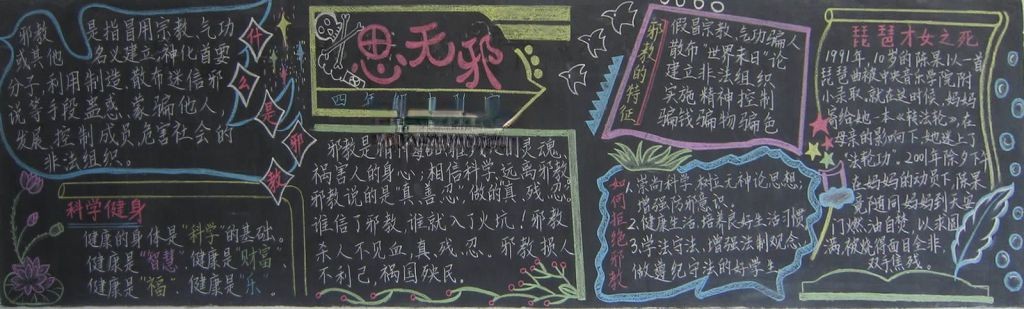 什么是邪教
邪教 是指冒用宗教、气功
或其他 名义建立,神化首要
分子,利用制造、散布迷信邪
说等手段蛊惑、蒙骗他人,
发展、控制成员,危害社会的
非法组织。
科学健身
健康的身体是"科学"的基础。
健康是"智慧"健康是"财富、
健康是"福" 健康是"乐"。
思无邪
四年
邪教是指 灵魂,
祸害人的身心;相信科学,远离邪教
邪教说的是真、善、忍,做的真、残、忍。
谁信了邪教,谁就入了火坑!邪教
杀人不见血,真、残、忍。邪教损人
不利己,祸国殃民。
邪教的特征
假冒宗教、气功骗人
散布"世界末日"论
建立非法组织
实施精神控制
骗钱骗物骗色
如何拒绝邪教
崇尚科学 树立无神论思想,
增强防邪意识。
2.健康生活,培养良好生活习惯
3.学法守法、增强法制观念,
做遵纪守法的好学生
琵琶才女之死
1991年,10岁的陈果以一首
琵琶曲被中央音乐学院附
小录取。就在这时候,妈妈
寄给她一本《转法轮》。在
母亲的影响下,她迷上了
"法轮功"。2001年除夕下午
在妈妈的动员下,陈果
竟随同妈妈到天安
门燃油自焚,以求圆
满,被烧得面目全非,
双手焦残。